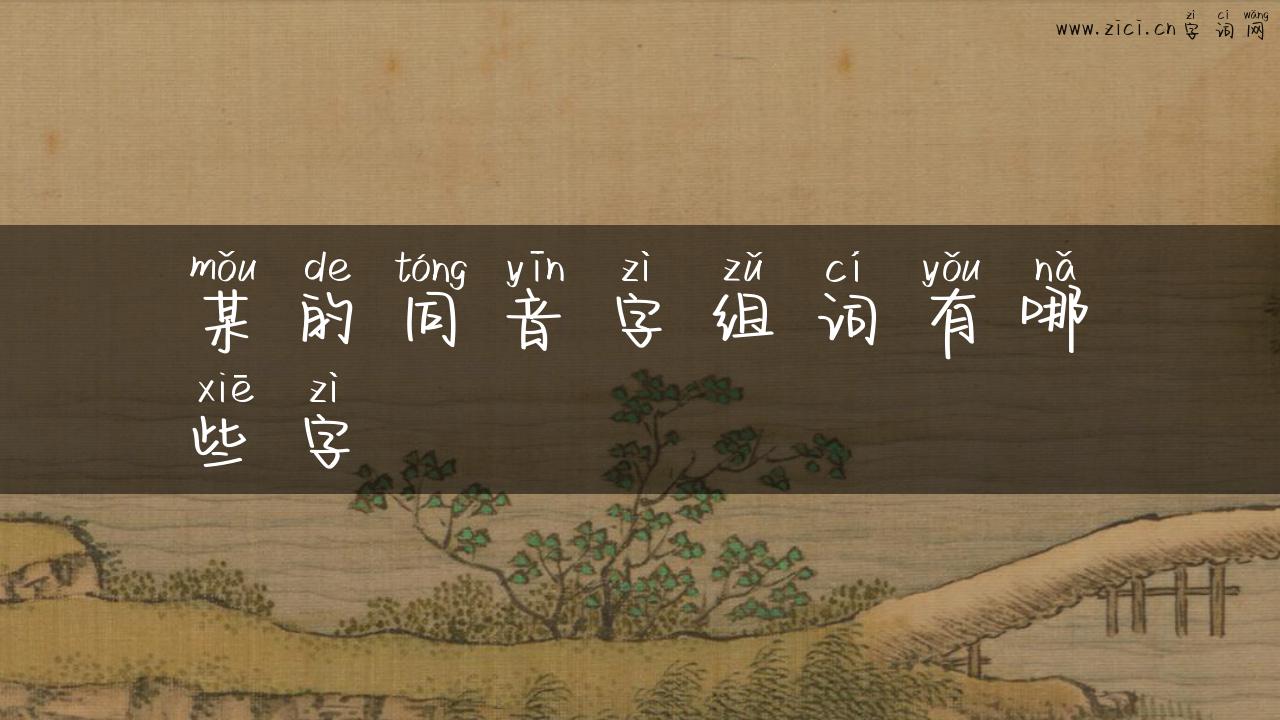 zì cí wǎng
www.zici.cn 字词网
mǒu de tóng yīn zì zǔ cí yǒu nǎ
某的同音字组词有哪
xiē zì
些字